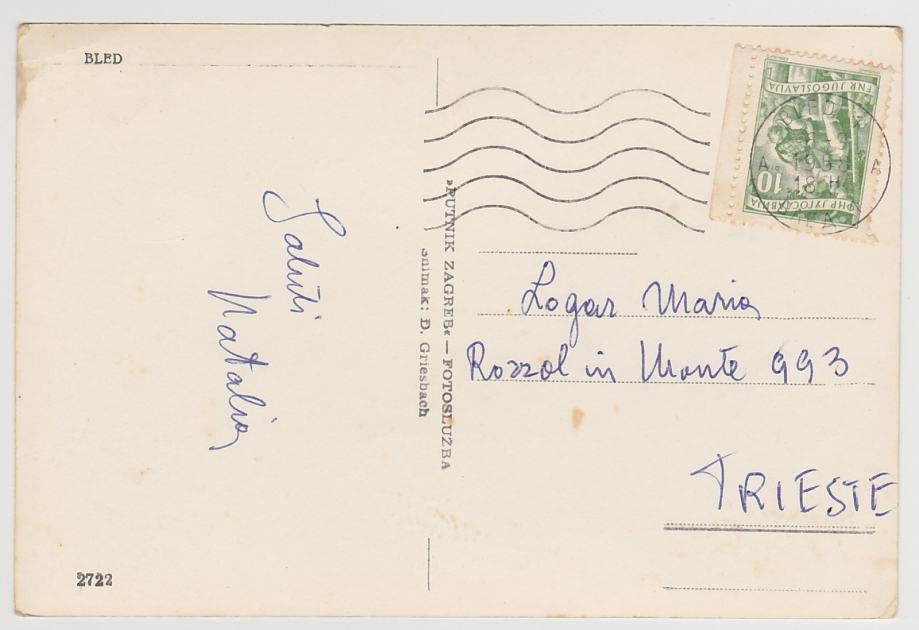 BLED
Saluti
Natalia
2722
»PUTNIK ZAGREB« — FOTOSLUŽBA
Snimak: Đ. Griesbach
FNR JUGOSLAVIJA
10
ФНР ЈУГОСЛАВИЈА
BLED
18 H
Logar Maria
Rozzol in Monte 993
TRIESTE